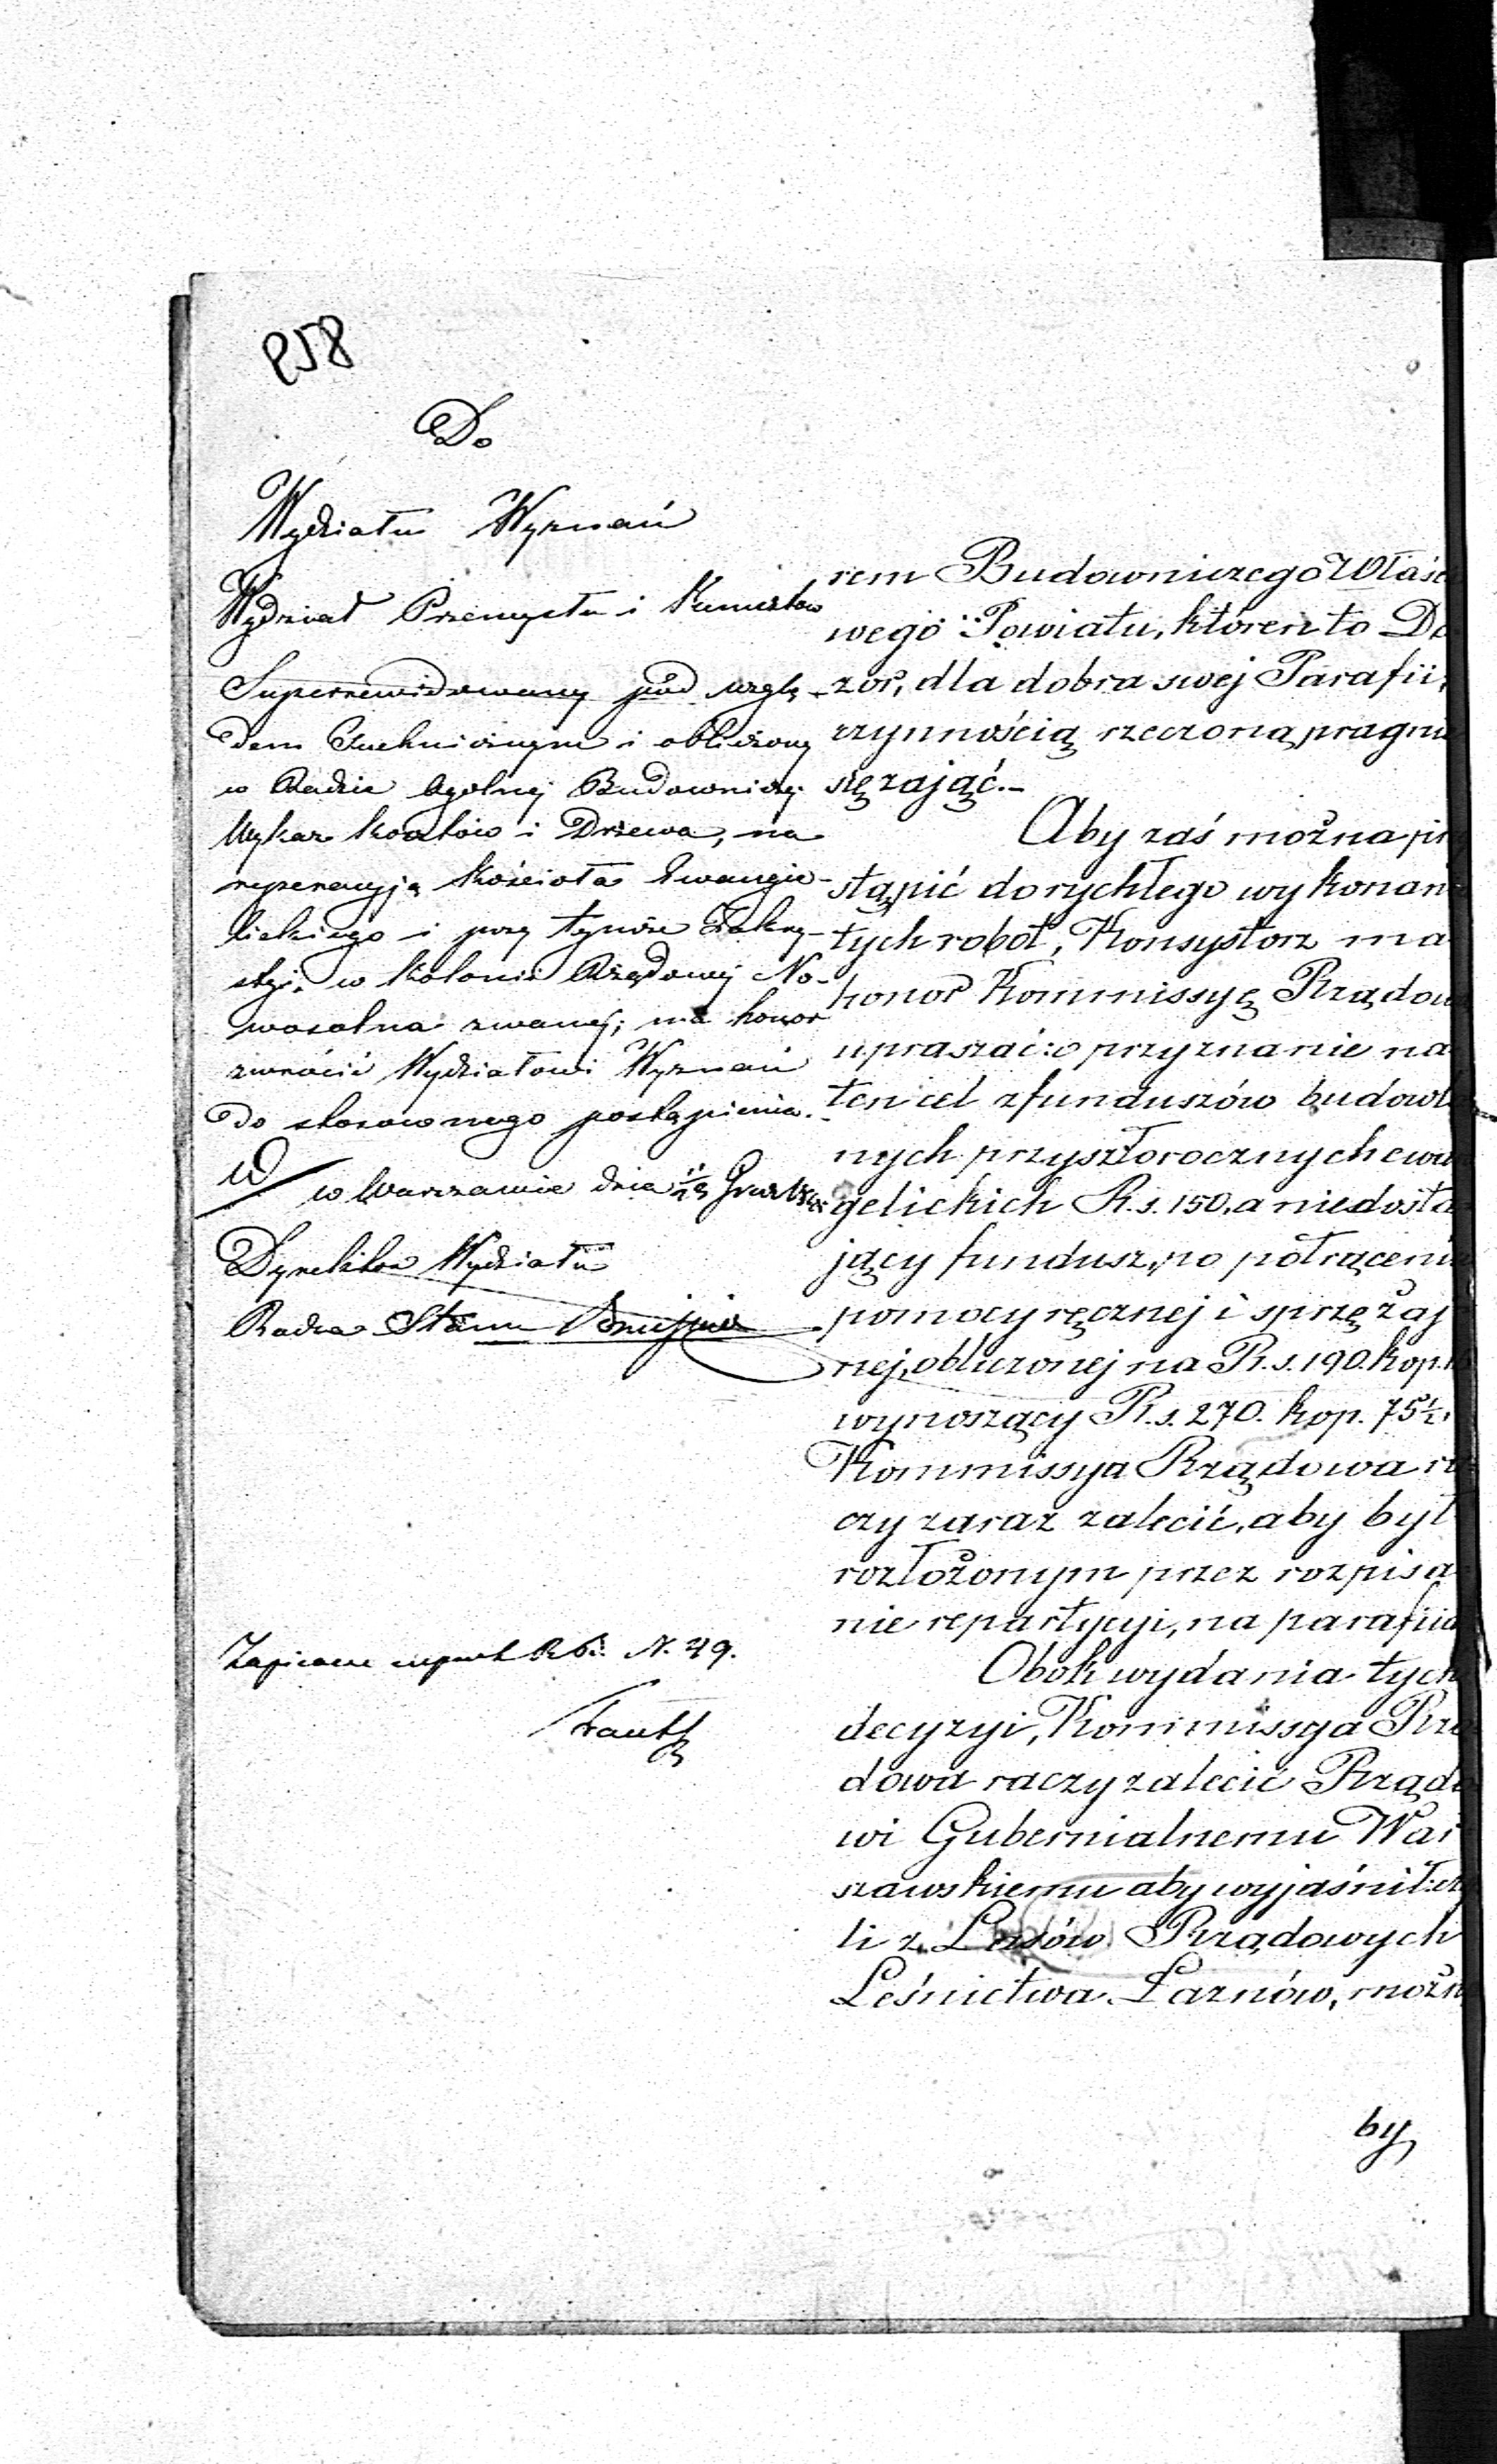 958
Do
Wydziału Wyznań
Wydział Przemysłu i Kunsztów
Superrewidowany pod wzglę-
dem Technicznym i obliczony
w Radzie Ogólnej Budowniczej
Wykaz kosztów i Drzewa, na
reperacyją Kościoła Ewangie-
lickiego i przy tymże Zakry-
styi, w Kolonii Rządowej No-
wosolna zwanej; ma honor
zwrócić Wydziałowi Wyznań
do stosownego postąpienia.
w Warszawie dnia
Dyrektor Wydziału
Radca Stanu
Zapisane N. 49.
rem Budowniczego Właśc
wego Powiatu, któren to Do
zór, dla dobra swej Parafii,
czynnością rzeczoną, pragnie
się zająć.-
Aby zaś można prz
stąpić do rychłego wykonani
tych robót, Konsystorz ma
honor Kommissyę Rządow
upraszać: o przyznanie na
ten cel z funduszów budowl
nych przyszłorocznych ewan
gelickich R.s. 150, a niedosta
jący fundusz, po potrąceniu
pomocy ręcznej i sprzężaj
nej, obliczonej na R.s. 190. kop.
wynoszący R.s. 270. kop. 75½,
Kommissya Rządowa ra
czy zaraz zalecić, aby był
rozłożonym przez rozpisa
nie repartycyi, na parafiia
Obok wydania tych
decyzyi, Kommissya Rzą
dowa raczy zalecić Rządo
wi Gubernialnemu War
szawskiemu aby wyjaśnił: czy
li z Lasów Rządowych
Leśnictwa Łaznów, możn
by